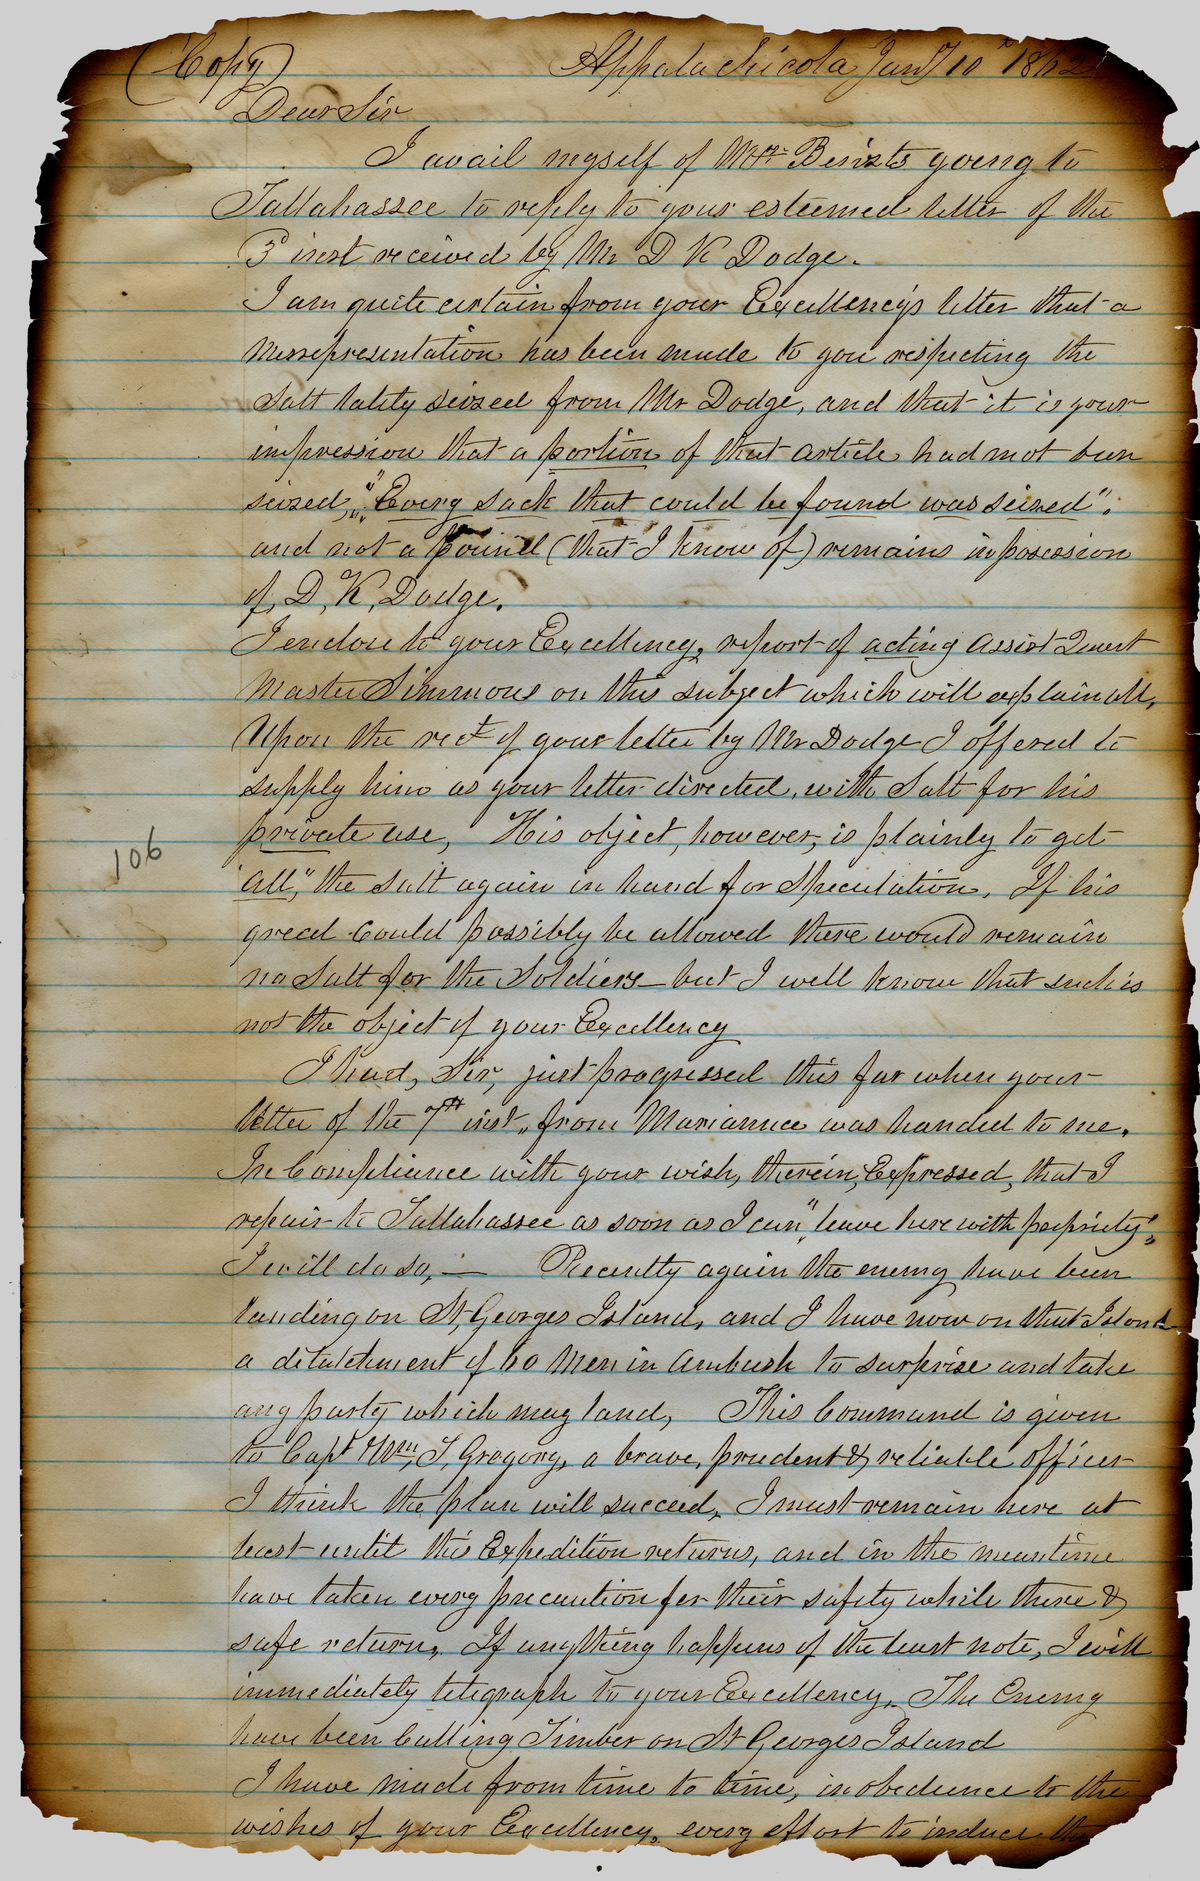 (Copy)
Appalachicola Jany 10th 1862
Dear Sir
I avail myself of Mr going to
Tallahassee to reply to your esteemed letter of the
3d inst received by Mr D K Dodge.
I am quite certain from your Excellency's letter that a
misrepresentation has been made to you respecting the
Salt lately seized from Mr Dodge, and that it is your
impression that a portion of that article had not been
seized, "Every sack that could be found was seized".
and not a pound (that I know of) remains in posession
of, D, K, Dodge.
I enclose to your Excellency, report of acting assist Quart
Master Simmons on this subject which will explain all,
Upon the rect of your letter by Mr Dodge I offered to
supply him as your letter directed, with Salt for his
private use, His object, however, is plainly to get
"all," the salt again in hand for speculation. If his
greed could possibly be allowed there would remain
no Salt for the Soldiers — but I well know that such is
not the object of your Excellency
I had, Sir, just progressed this far when your
letter of the 7th inst, from Marianna was handed to me.
In Compliance with your wish, therein, Expressed, that I
repair to Tallahassee as soon as I can "leave here with propriety",
I will do so, — Recently again the enemy have been
landing on St Georges Island, and I have now on that Island
a detatchment of 60 Men in ambush to surprise and take
any party which may land, This Command is given
to Capt Wm, T, Gregory, a brave, prudent & reliable officer
I think the plan will succeed, I must remain here at
least until this Expedition returns, and in the meantime
have taken every precaution for their safety while there &
safe return, If anything happens of the least note, I will
immediately telegraph to your Excellency, The Enemy
have been Cutting Timber on St Georges Island
I have made from time to time, in obedience to the
wishes of your Excellency, every effort to induce the
106